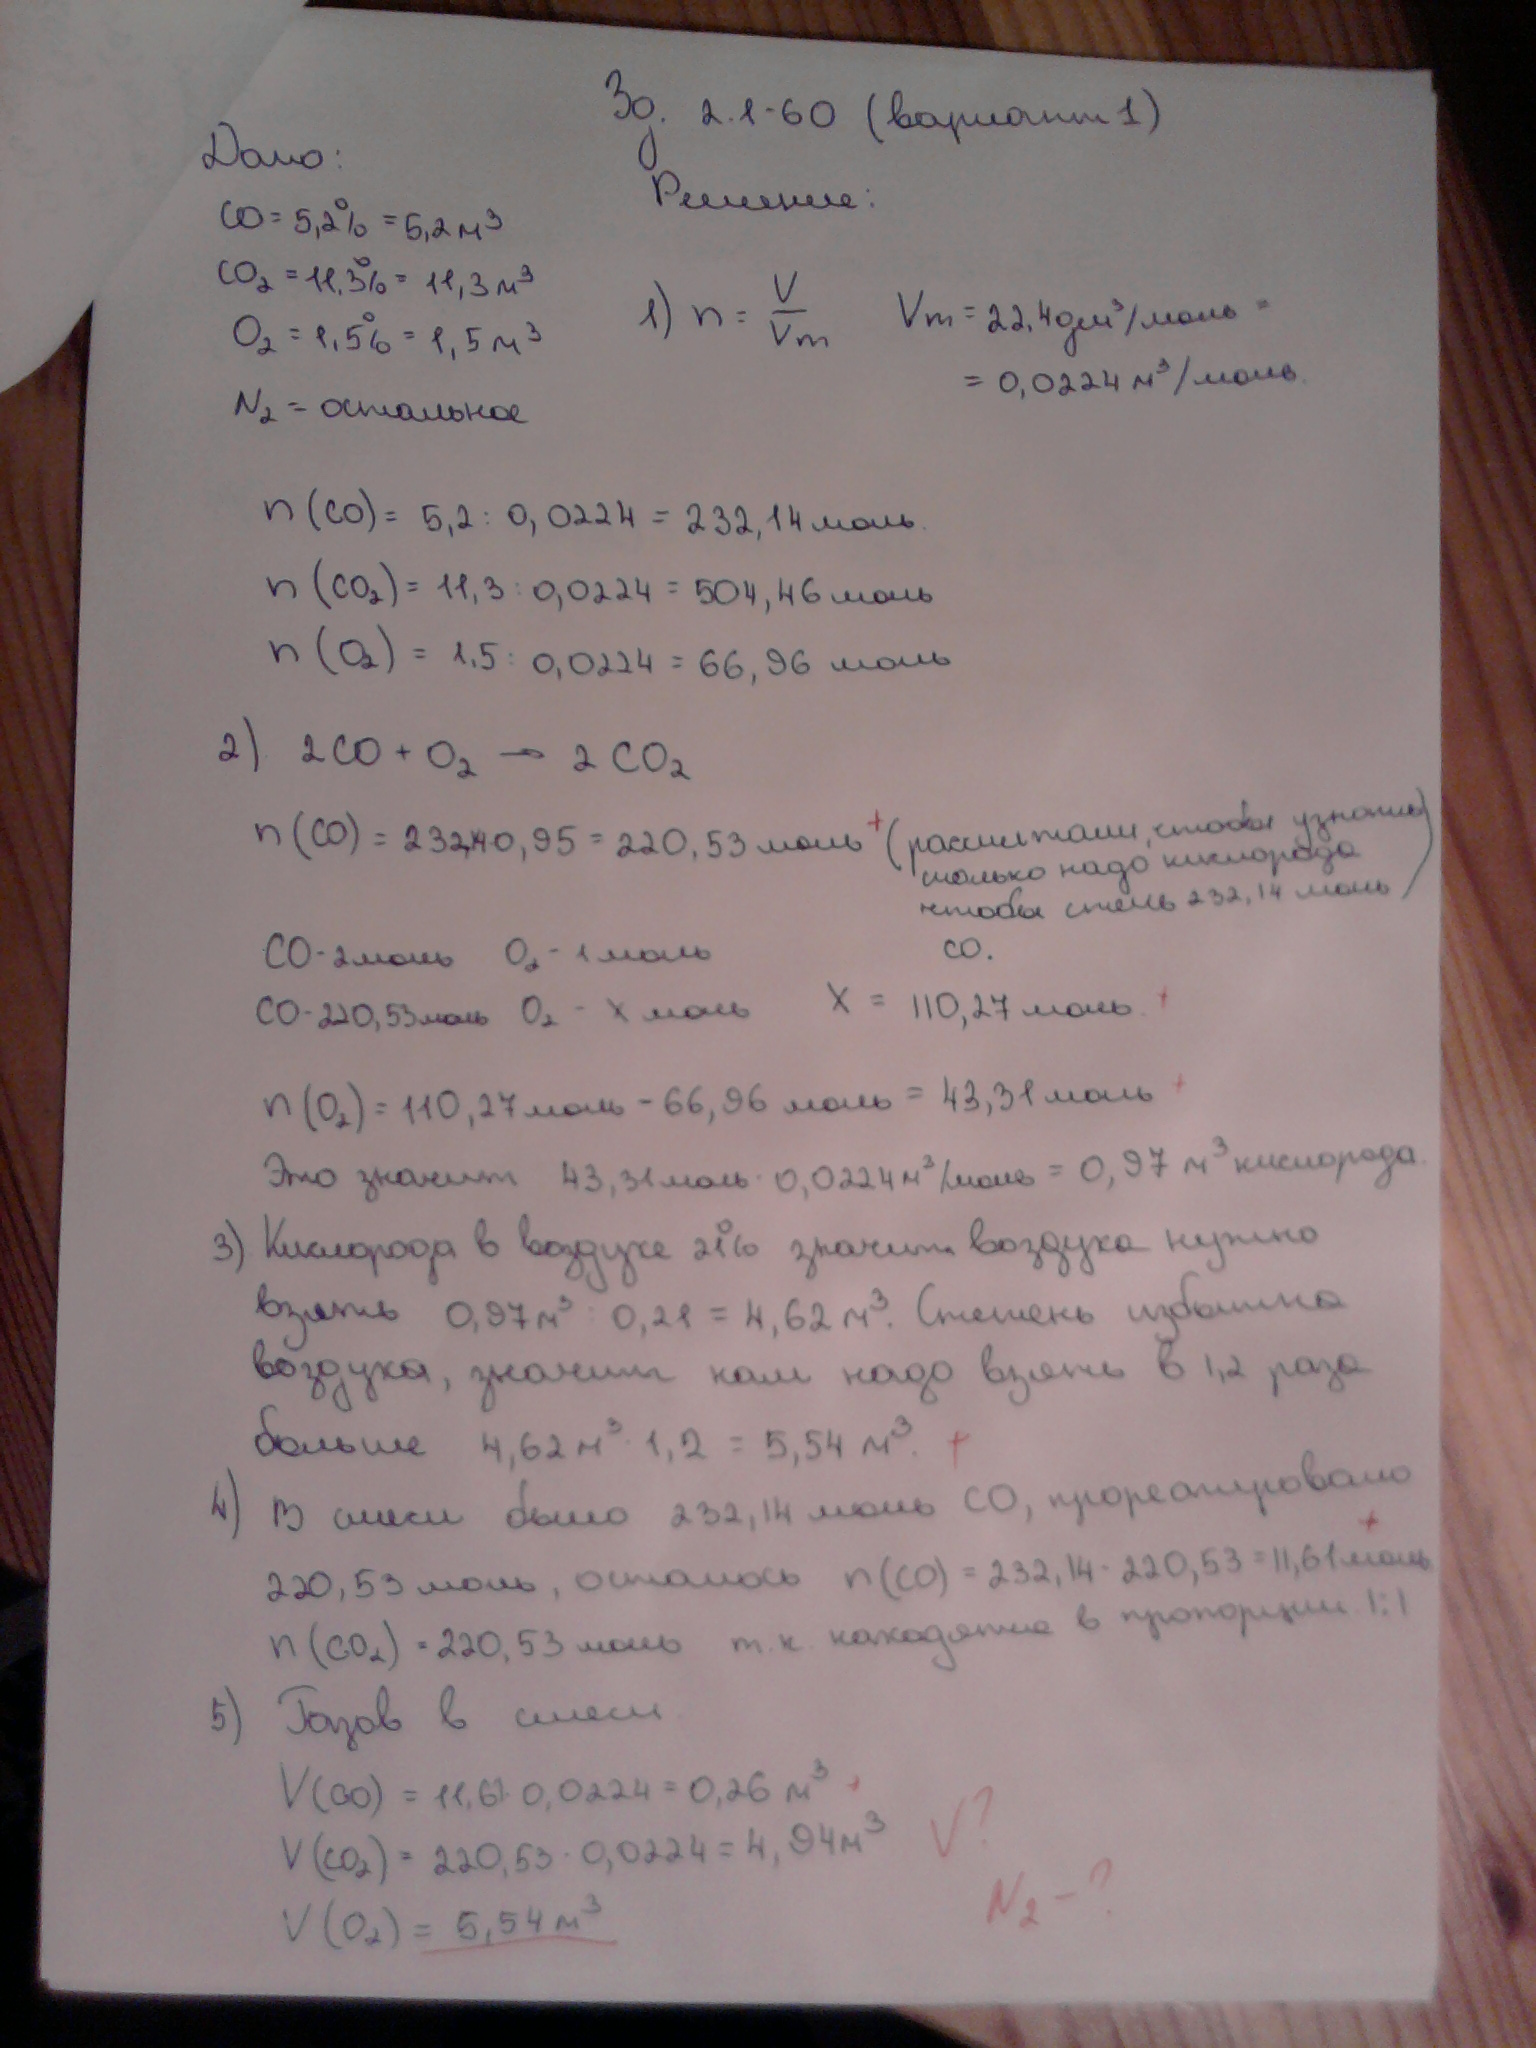 Зд. 2.1-60 (вариант 1)
Дано:
Решение:
CO = 5,2% = 5,2 м³
CO₂ = 11,3% = 11,3 м³
O₂ = 1,5% = 1,5 м³
N₂ = остальное
1) n = V/Vm Vm = 22,4 дм³/моль =
= 0,0224 м³/моль.
n (CO) = 5,2 : 0,0224 = 232,14 моль.
n (CO₂) = 11,3 : 0,0224 = 504,46 моль
n (O₂) = 1,5 : 0,0224 = 66,96 моль
2) 2CO + O₂ → 2CO₂
n (CO) = 232,14·0,95 = 220,53 моль + (рассчитали, чтобы узнать
сколько надо кислорода
чтобы сжечь 232,14 моль)
CO.
CO - 2 моль O₂ - 1 моль
CO - 220,53 моль O₂ - X моль X = 110,27 моль. +
n (O₂) = 110,27 моль - 66,96 моль = 43,31 моль +
Это значит 43,31 моль · 0,0224 м³/моль = 0,97 м³ кислорода.
3) Кислорода в воздухе 21% значит воздуха нужно
взять 0,97 м³ : 0,21 = 4,62 м³. Степень избытка
воздуха, значит нам надо взять в 1,2 раза
больше 4,62 м³ · 1,2 = 5,54 м³. +
4) В смеси было 232,14 моль CO, прореагировало
220,53 моль, осталось n (CO) = 232,14 - 220,53 = 11,61 моль +
n (CO₂) = 220,53 моль т.к. находятся в пропорции 1:1
5) Газов в смеси
V (CO) = 11,61·0,0224 = 0,26 м³ +
V (CO₂) = 220,53 · 0,0224 = 4,94 м³ V?
N₂ - ?
V (O₂) = 5,54 м³